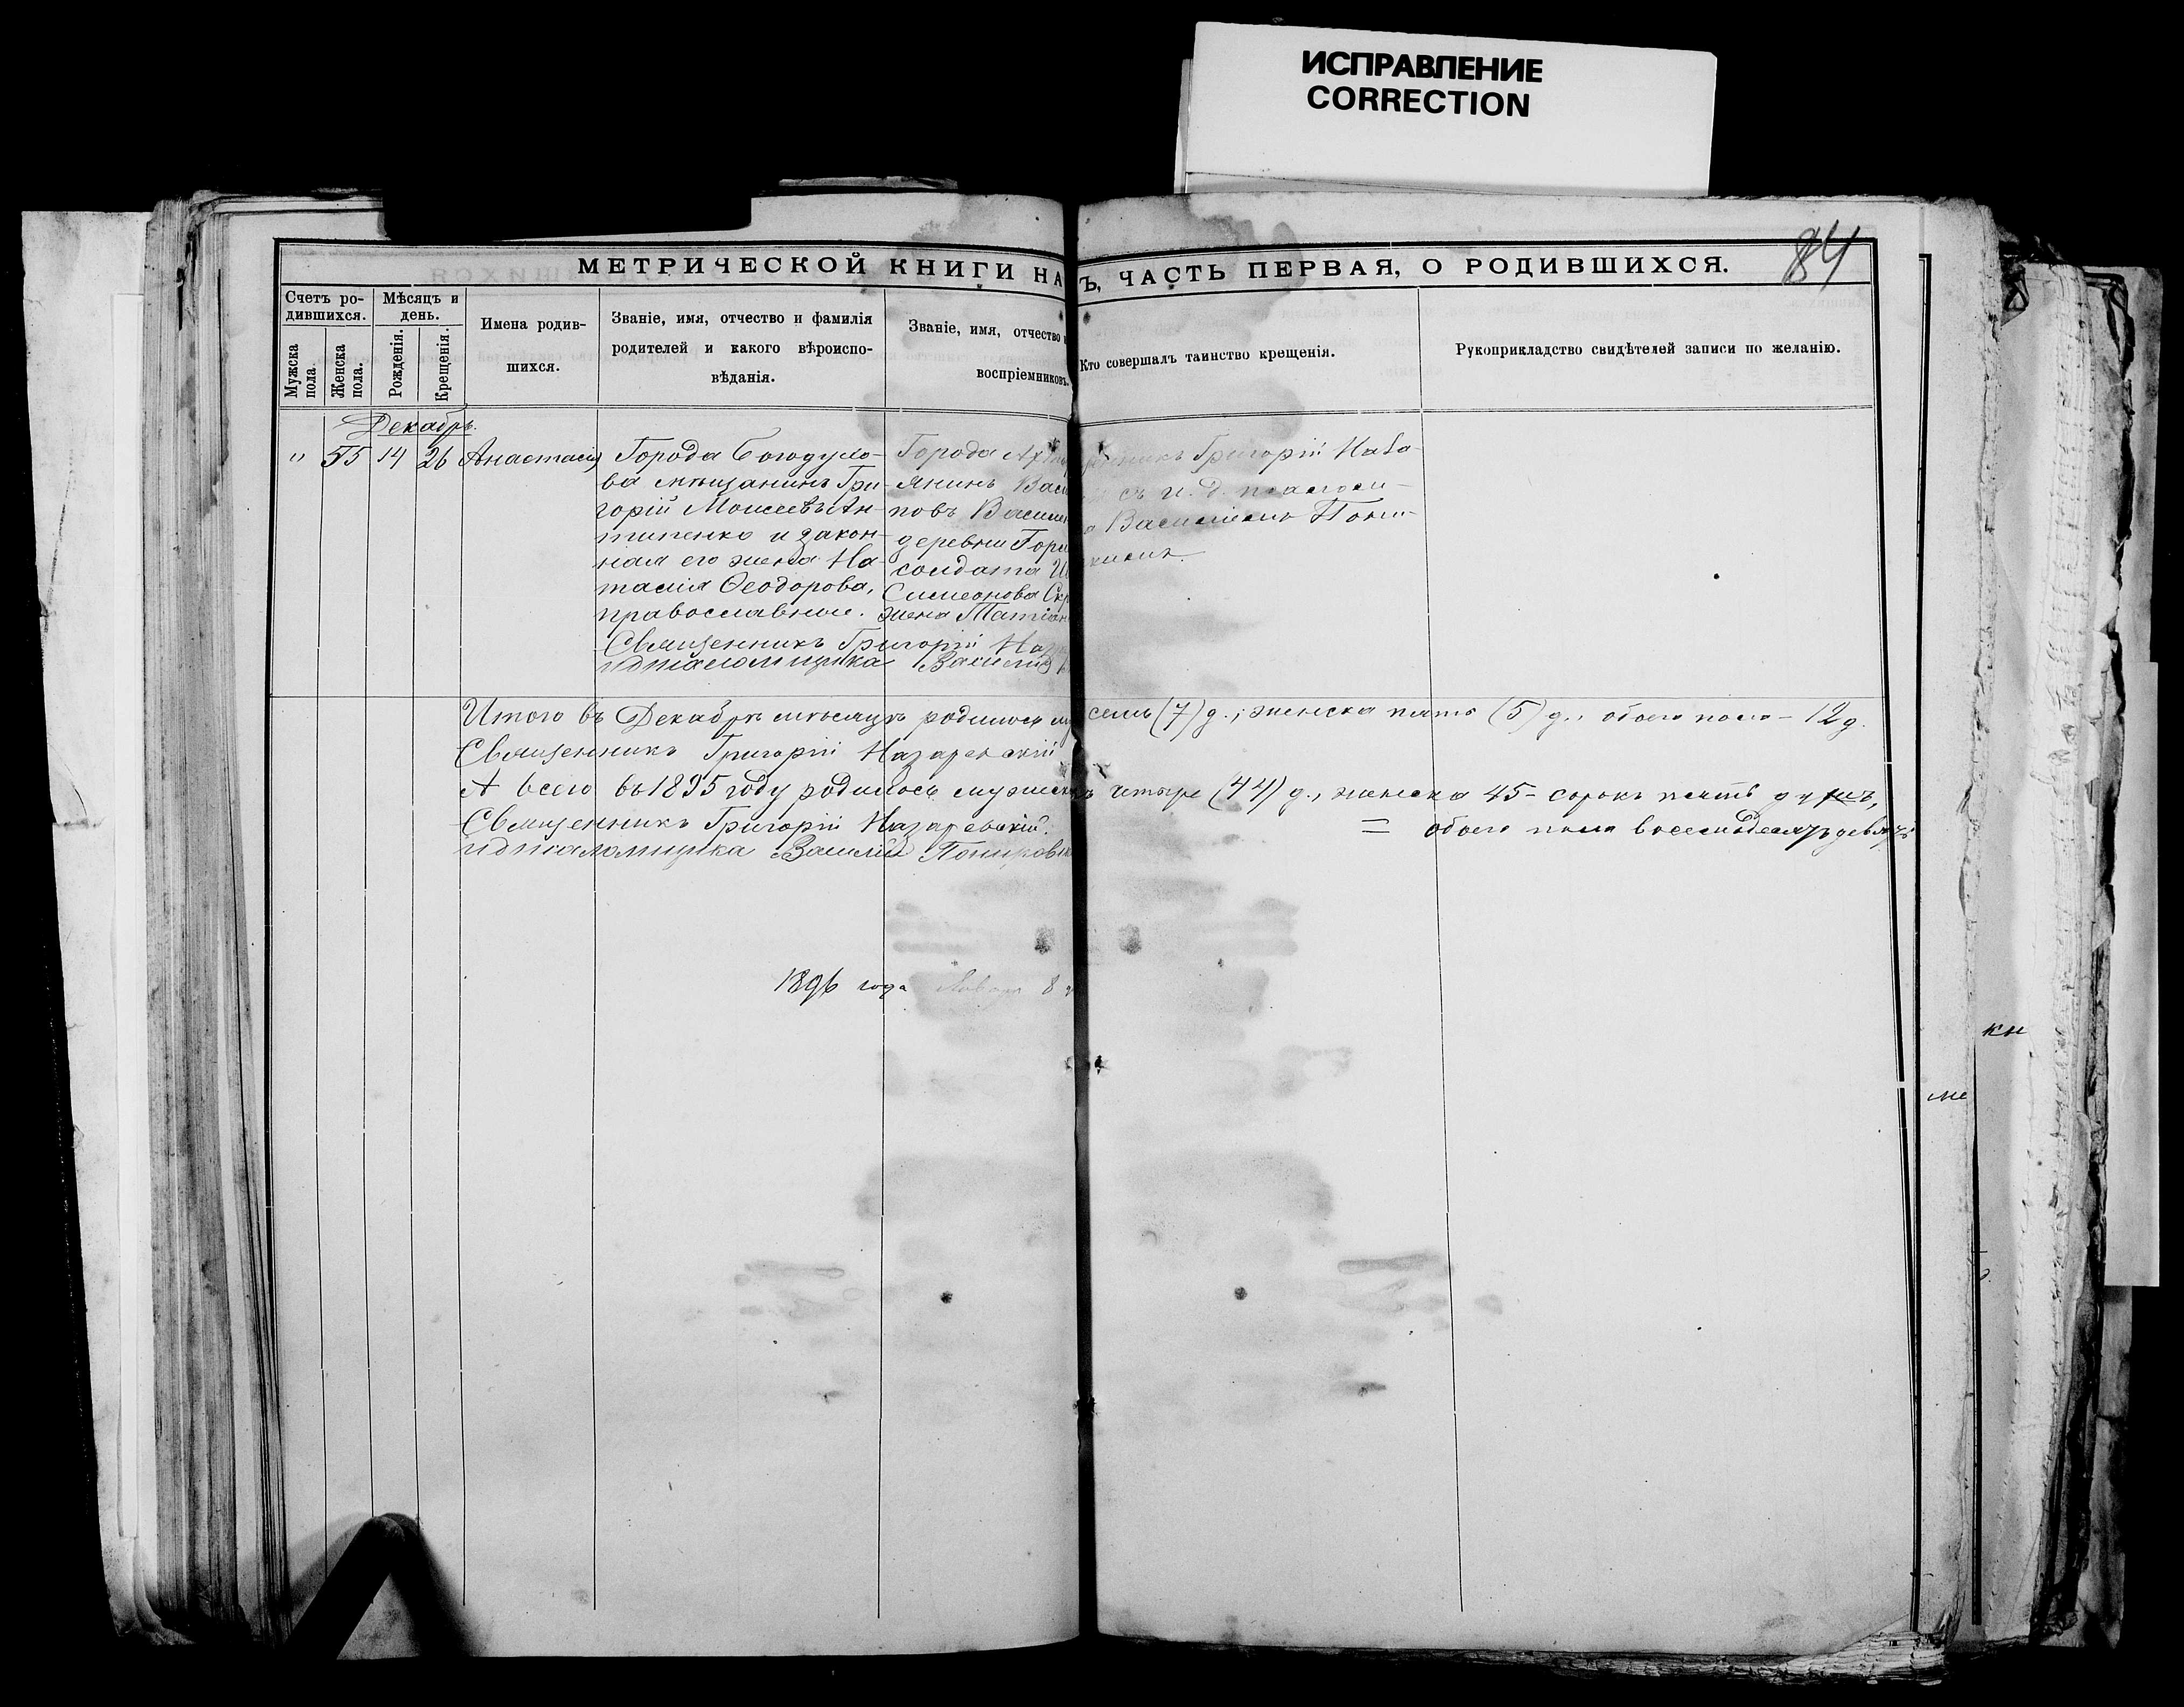 ИСПРАВЛЕНИЕ
CORRECTION
84
МЕТРИЧЕСКОЙ КНИГИ НА Ъ, ЧАСТЬ ПЕРВАЯ, О РОДИВШИХСЯ.
Счетъ ро-
дившихся.
Мужска
пола.
Женска
пола.
Мѣсяцъ и
день.
Рожденія.
Крещенія.
Имена родив-
шихся.
Званіе, имя, отчество и фамилія
родителей и какого вѣроиспо-
вѣданія.
Званіе, имя, отчество
воспріемниковъ.
Кто совершалъ таинство крещенія.
Рукоприкладство свидѣтелей записи по желанію.
Декабрь.
" 55 14 26 Анастасія
Города Богодухо-
ва мѣщанинъ Гри-
горій Моисеевъ Ан-
типенко и закон-
ная его жена На-
талія Ѳеодорова,
православные.
Города
янинъ Вас
повъ Васил
деревни Гори
солдата
Симеонова
жена Татіан
Григорій
съ и. д. псалом-
Василіемъ
Священникъ Григорій Наз
и д псаломщика Василій
Итого въ Декабрѣ мѣсяцѣ родилось му семь (7) д.; женска пять (5) д., обоего пола – 12 д.
Священникъ Григорій Назаревскій
А всего въ 1895 году родилось мужска четыре (44) д., женска 45 – сорокъ пять душъ,
Священникъ Григорій Назаревскій. = обоего пола восемьдесятъ девять
и д псаломщика Василій
1896 года Января 8
кн
ме